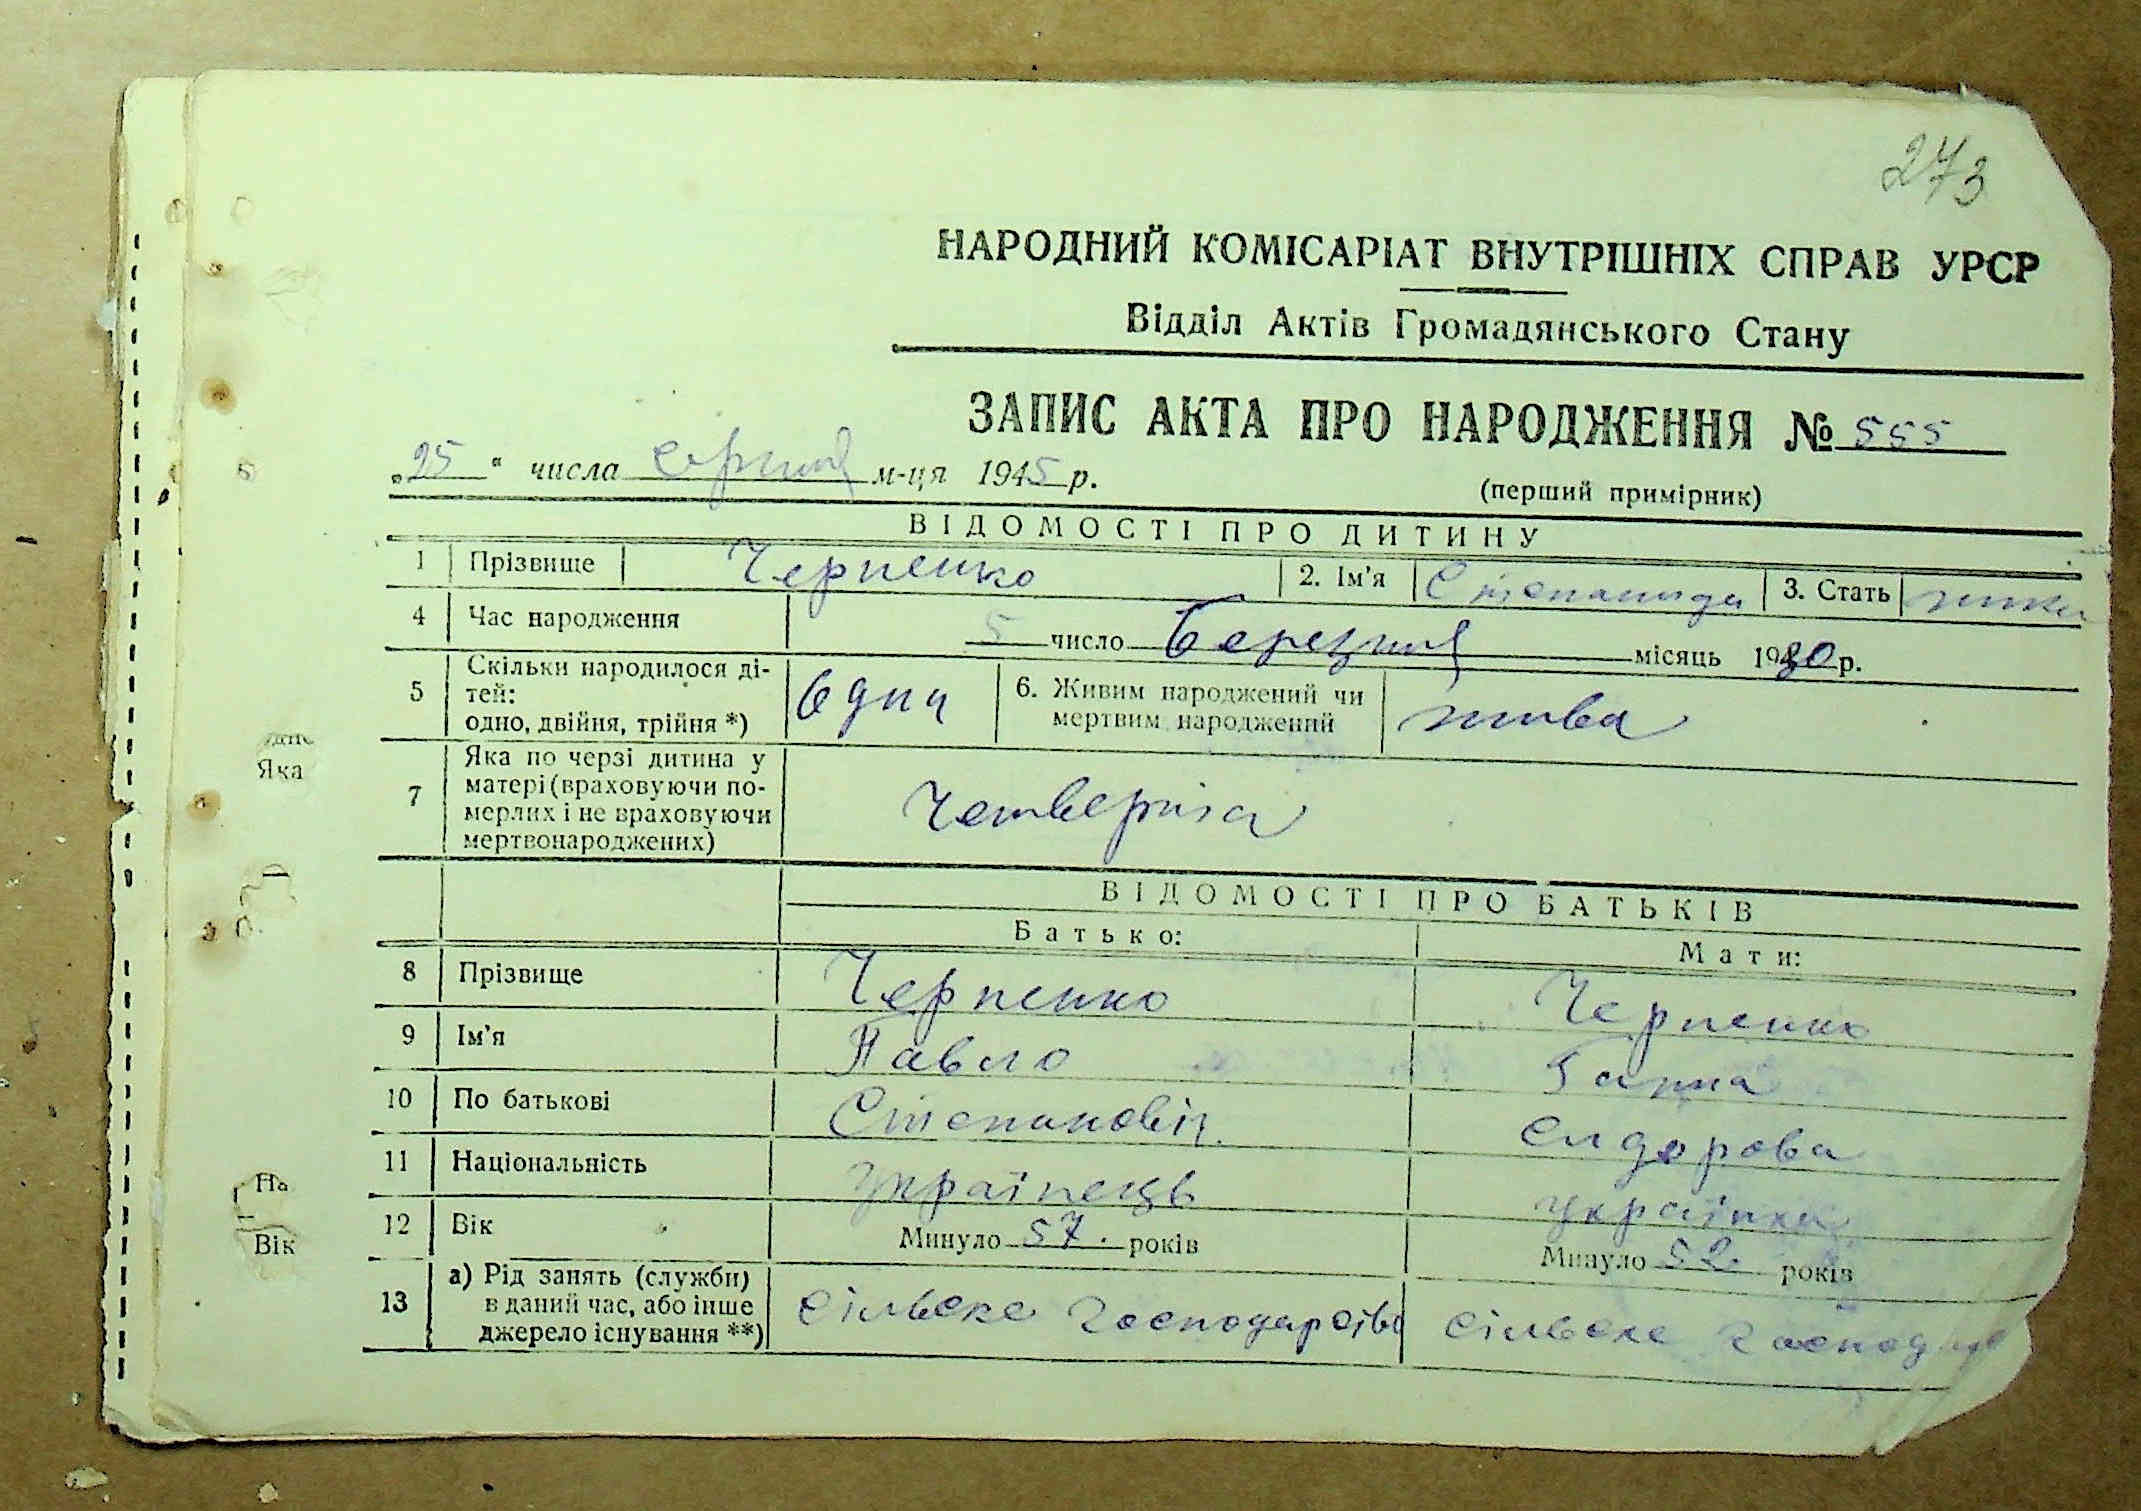 273
НАРОДНИЙ КОМІСАРІАТ ВНУТРІШНІХ СПРАВ УРСР
Відділ Актів Громадянського Стану
ЗАПИС АКТА ПРО НАРОДЖЕННЯ № 555
„25“ числа серпня м-ця 1945 р.
(перший примірник)
ВІДОМОСТІ ПРО ДИТИНУ
1 Прізвище Черненко 2. Ім'я Степанида 3. Стать
4 Час народження 5 число Березня місяць 1930 р.
5 Скільки народилося ді-
тей:
одно, двійня, трійня *) одна 6. Живим народжений чи
мертвим народжений жива
7 Яка по черзі дитина у
матері (враховуючи по-
мерлих і не враховуючи
мертвонароджених) Четверта
ВІДОМОСТІ ПРО БАТЬКІВ
Батько: Мати:
8 Прізвище Черненко Черненко
9 Ім'я Павло Ганна
10 По батькові Степанович Сидорова
11 Національність українець українка
12 Вік Минуло 57 років Минуло 52 років
13 а) Рід занять (служби)
в даний час, або інше
джерело існування **) сільске господарство сільске господар
Яка
На
Вік